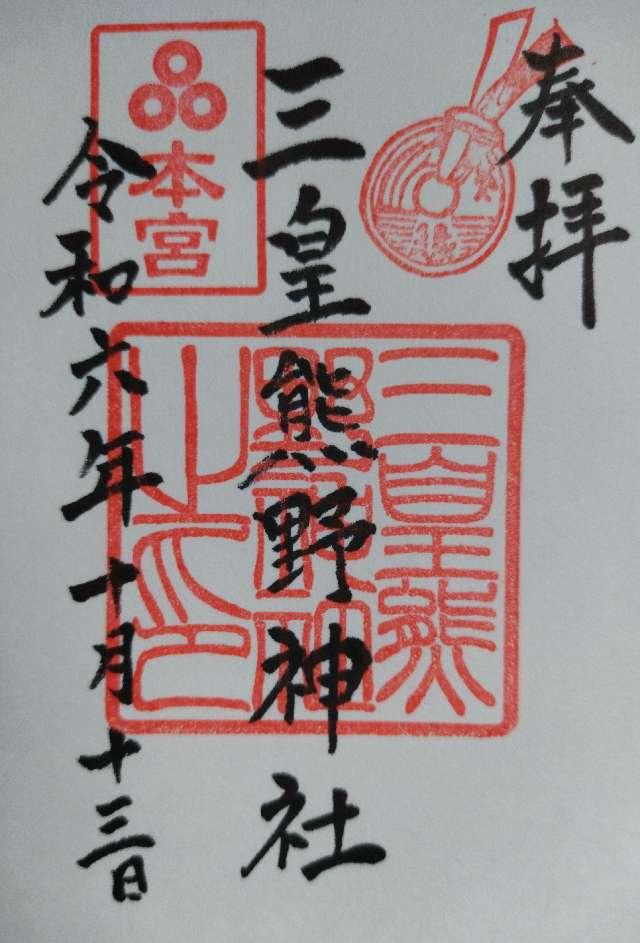 奉拝
三皇熊野神社
本宮
三皇熊
野神社
之印
令和六年十月十三日